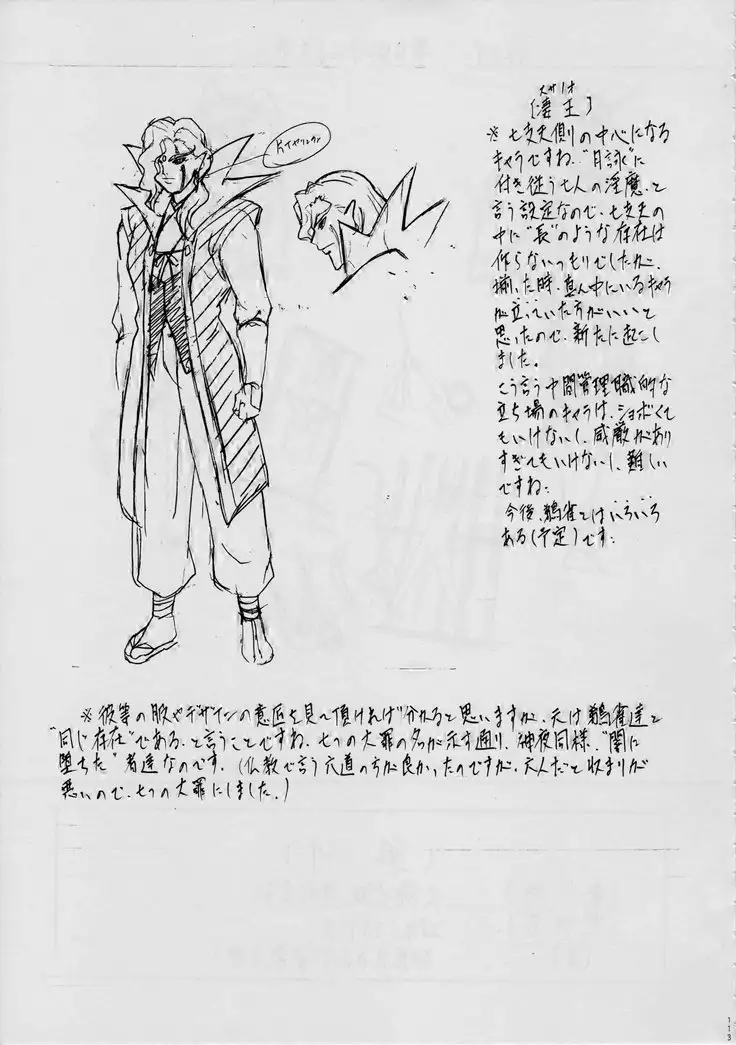 [凄王]
※七支天側の中心になる
キャラですね。"月詠"に
付き従う七人の淫魔、と
言う設定なので、七支天の
中に"長"のような存在は
作らないつもりでしたが、
揃った時、真ん中にいるキャラ
が立っていた方がいいと
思ったので、新たに起こし
ました。
こう言う中間管理職的な
立ち場のキャラは、ショボくて
もいけないし、威厳があり
すぎてもいけないし、難しい
ですね。
今後、鵺雀とはいろいろ
ある(予定)です。
片イヤリング
※彼等の服やデザインの意匠を見て頂ければ分かると思いますが、元は鵺雀達と
"同じ存在"である、と言うことですね。七つの大罪の名が示す通り、神夜同様、"闇に
堕ちた"者達なのです。(仏教で言う六道の方が良かったのですが、六人だと収まりが
悪いので、七つの大罪にしました。)
113